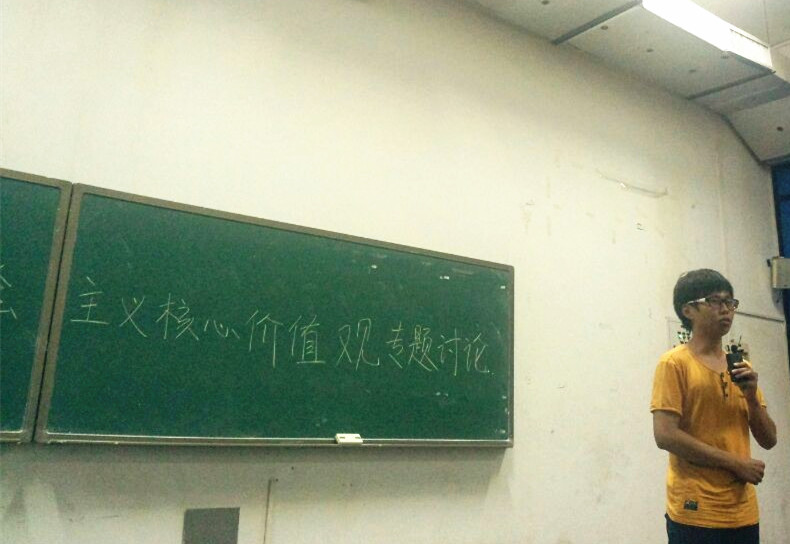 会主义核心价值观专题讨论